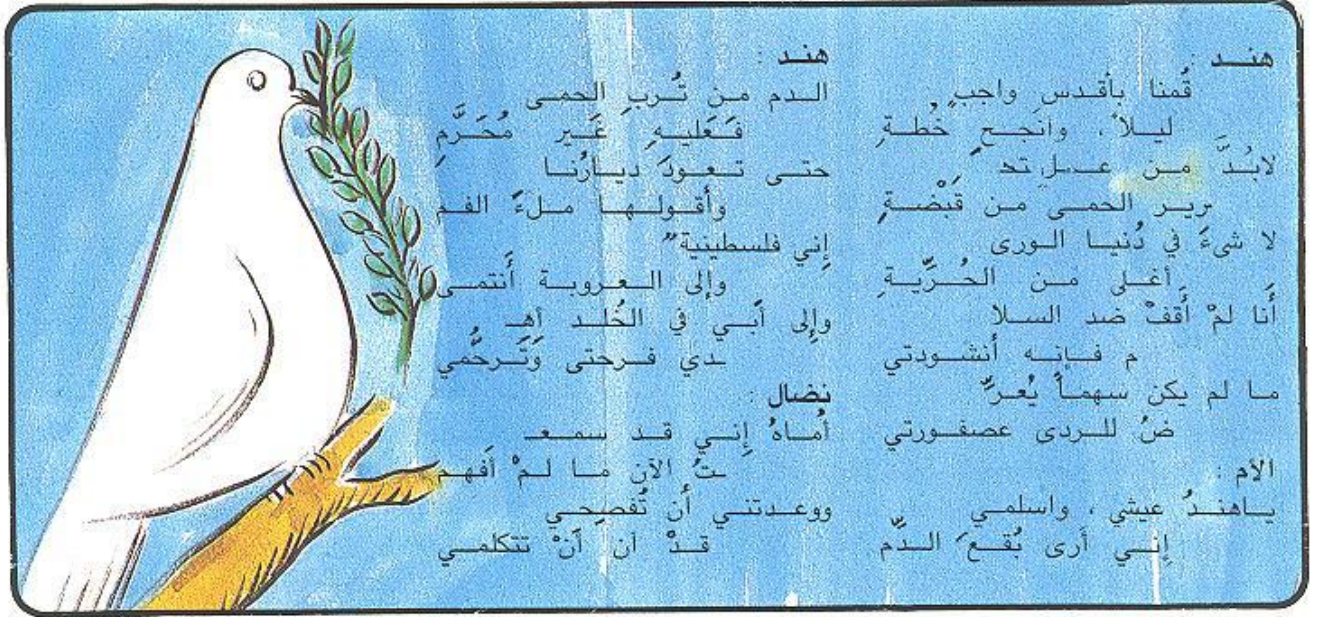 هنـد :
قُمنا بأقـدس واجبٍ
ليـلاً ، وانجـحِ خُطـةِ
لابُـدَّ مـن عـلى تحـ
ـرير الحمـى مـن قَبْضـةِ
لا شيءَ في دُنيـا الـورى
أغلى مـن الحُـرِّيةِ
أنا لمْ أقفْ ضد السـلا
م فـإنـه أنشـودتي
مـا لم يكن سهمـاً يُعـرِّ
ضُ للـردى عصفـورتي
الام :
يـاهنـدُ عيشي ، واسلمـي
إنـي أرى بُقـعَ الـدَّم
هنـد :
الـدم مـن تُـربِ الحمـى
فَـعَليـهِ غَـير مُحَـرَّمِ
حتـى تـعـودَ ديـارُنـا
وأقـولـهـا مـلءَ الفـم
إني فلسطينية"
وإلى الـعـروبـة أنتمـى
وإلى أبـي في الخُلـد أهـ
ـدي فـرحتى وَتَـرحُّمي
نضال :
أمـاهُ إنـي قـد سمعـ
ـتُ الآن مـا لـمْ أفهـم
ووعـدتنـي أن تُفصحـي
قـدْ آن أنْ تتكلمـي